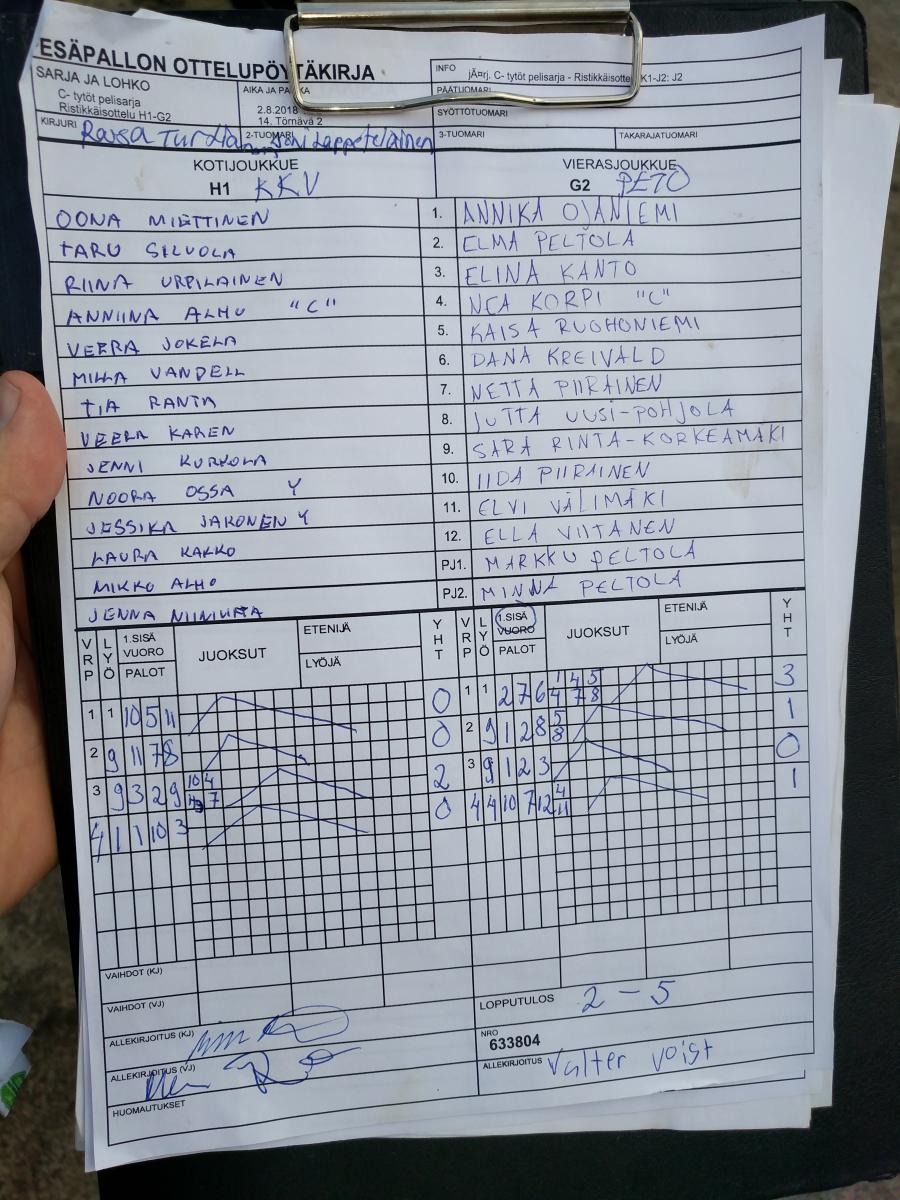 ESÄPALLON OTTELUPÖYTÄKIRJA
SARJA JA LOHKO
C- tytöt pelisarja
Ristikkäisottelu H1-G2
AIKA JA PAIKKA
2.8.2018
14. Törnävä 2
INFO jÄ¤rj. C- tytöt pelisarja - Ristikkäisottelu K1-J2: J2
PÄÄTUOMARI
SYÖTTÖTUOMARI
KIRJURI
2-TUOMARI
3-TUOMARI
TAKARAJATUOMARI
KOTIJOUKKUE
H1 KKV
VIERASJOUKKUE
G2 PETO
OONA MIETTINEN 1. ANNIKA OJANIEMI
TARU SILVOLA 2. ELMA PELTOLA
RIINA URPILAINEN 3. ELINA KANTO
ANNIINA ALHO "C" 4. NEA KORPI "C"
VEERA JOKELA 5. KAISA RUOHONIEMI
MILLA VANDELL 6. DANA KREIVALD
TIA RANTA 7. NETTA PIIRAINEN
VEERA KAREN 8. JUTTA UUSI-POHJOLA
JENNI KURKOLA 9. SARA RINTA-KORKEAMÄKI
NOORA OSSA Y 10. IIDA PIIRAINEN
JESSIKA JAKONEN Y 11. ELVI VÄLIMÄKI
LAURA KAKKO 12. ELLA VIITANEN
MIKKO ALHO PJ1. MARKKU PELTOLA
JENNA PJ2. MINNA PELTOLA
VRP LYÖ 1.SISÄ VUORO PALOT JUOKSUT ETENIJÄ LYÖJÄ YHT
VRP LYÖ 1.SISÄ VUORO PALOT JUOKSUT ETENIJÄ LYÖJÄ YHT
1 1 10 5 11 0
2 9 11 7 8 0
3 9 3 2 9 10 4 7 2
4 1 1 10 3 0
1 1 2 7 6 1 4 5 4 7 8 3
2 9 1 2 8 5 8 1
3 9 1 2 3 0
4 4 10 7 12 4 11 1
VAIHDOT (KJ)
VAIHDOT (VJ)
LOPPUTULOS 2 - 5
ALLEKIRJOITUS (KJ)
NRO
633804
ALLEKIRJOITUS (VJ)
ALLEKIRJOITUS Valter Voist
HUOMAUTUKSET